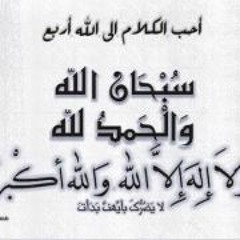 أحب الكلام الى الله أربع
سُبْحَانَ اللّه
وَالْحَمدُ للّه
ولَا إِلهَ إِلَّا اللّه وَاللّهُ أَكْبر
لا يَضرُّكَ بأيِّهنَّ بَدَأتَ